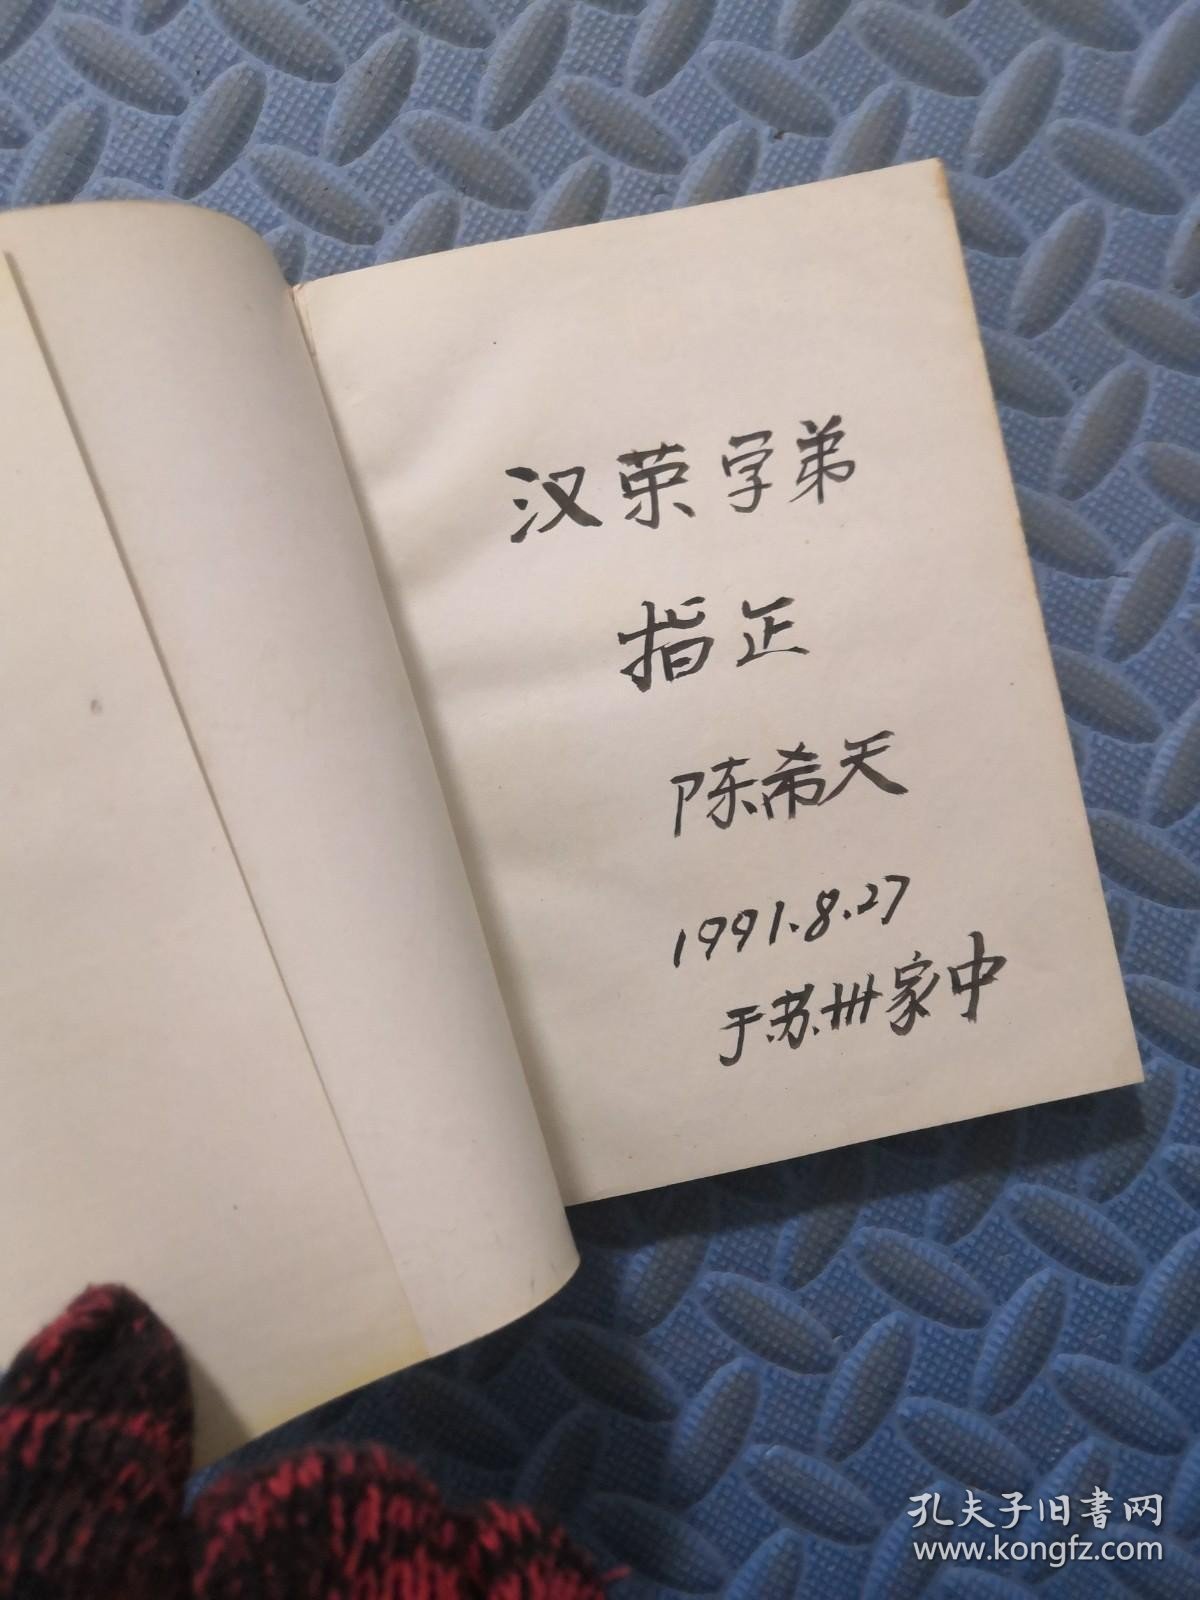 汉荣学弟
指正
陈希天
1991.8.27
于苏州家中
孔夫子旧書网
www.kongfz.com